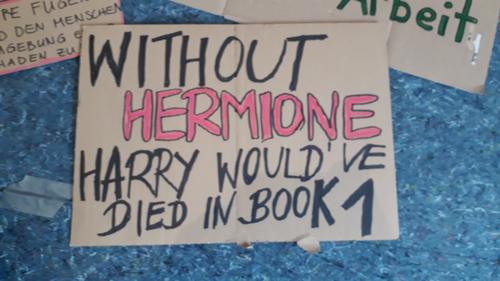 PE FÜGEN
D DEN MENSCHEN
MGEBUNG
HADEN ZU
Arbeit
WITHOUT
HERMIONE
HARRY WOULD'VE
DIED IN BOOK 1